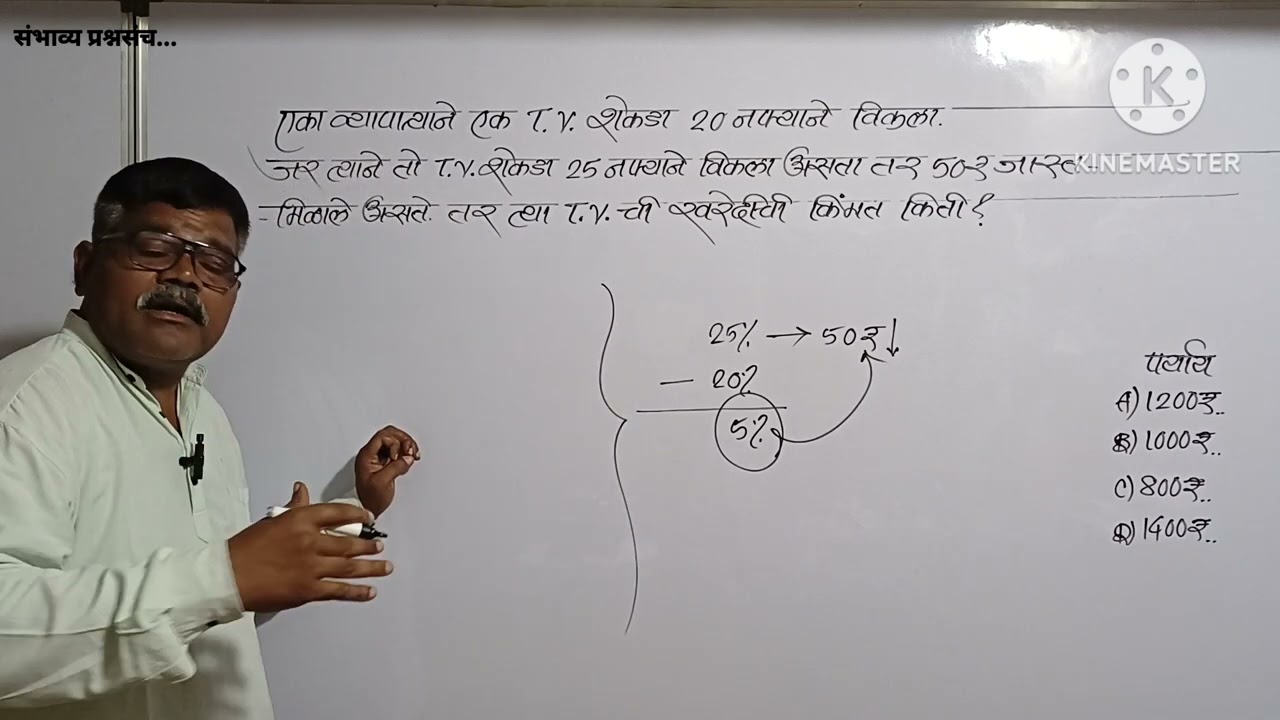 संभाव्य प्रश्नसंच...
K
KINEMASTER
एका व्यापाऱ्याने एक T.V. शेकडा 20 नफ्याने विकला.
जर त्याने तो T.V. शेकडा 25 नफ्याने विकला असता तर 50₹ जास्त
मिळाले असते. तर त्या T.V. ची खरेदीची किंमत किती?
25% → 50₹ ↓
— 20%
5%
पर्याय
A) 1200₹..
B) 1000₹..
C) 800₹..
D) 1400₹..